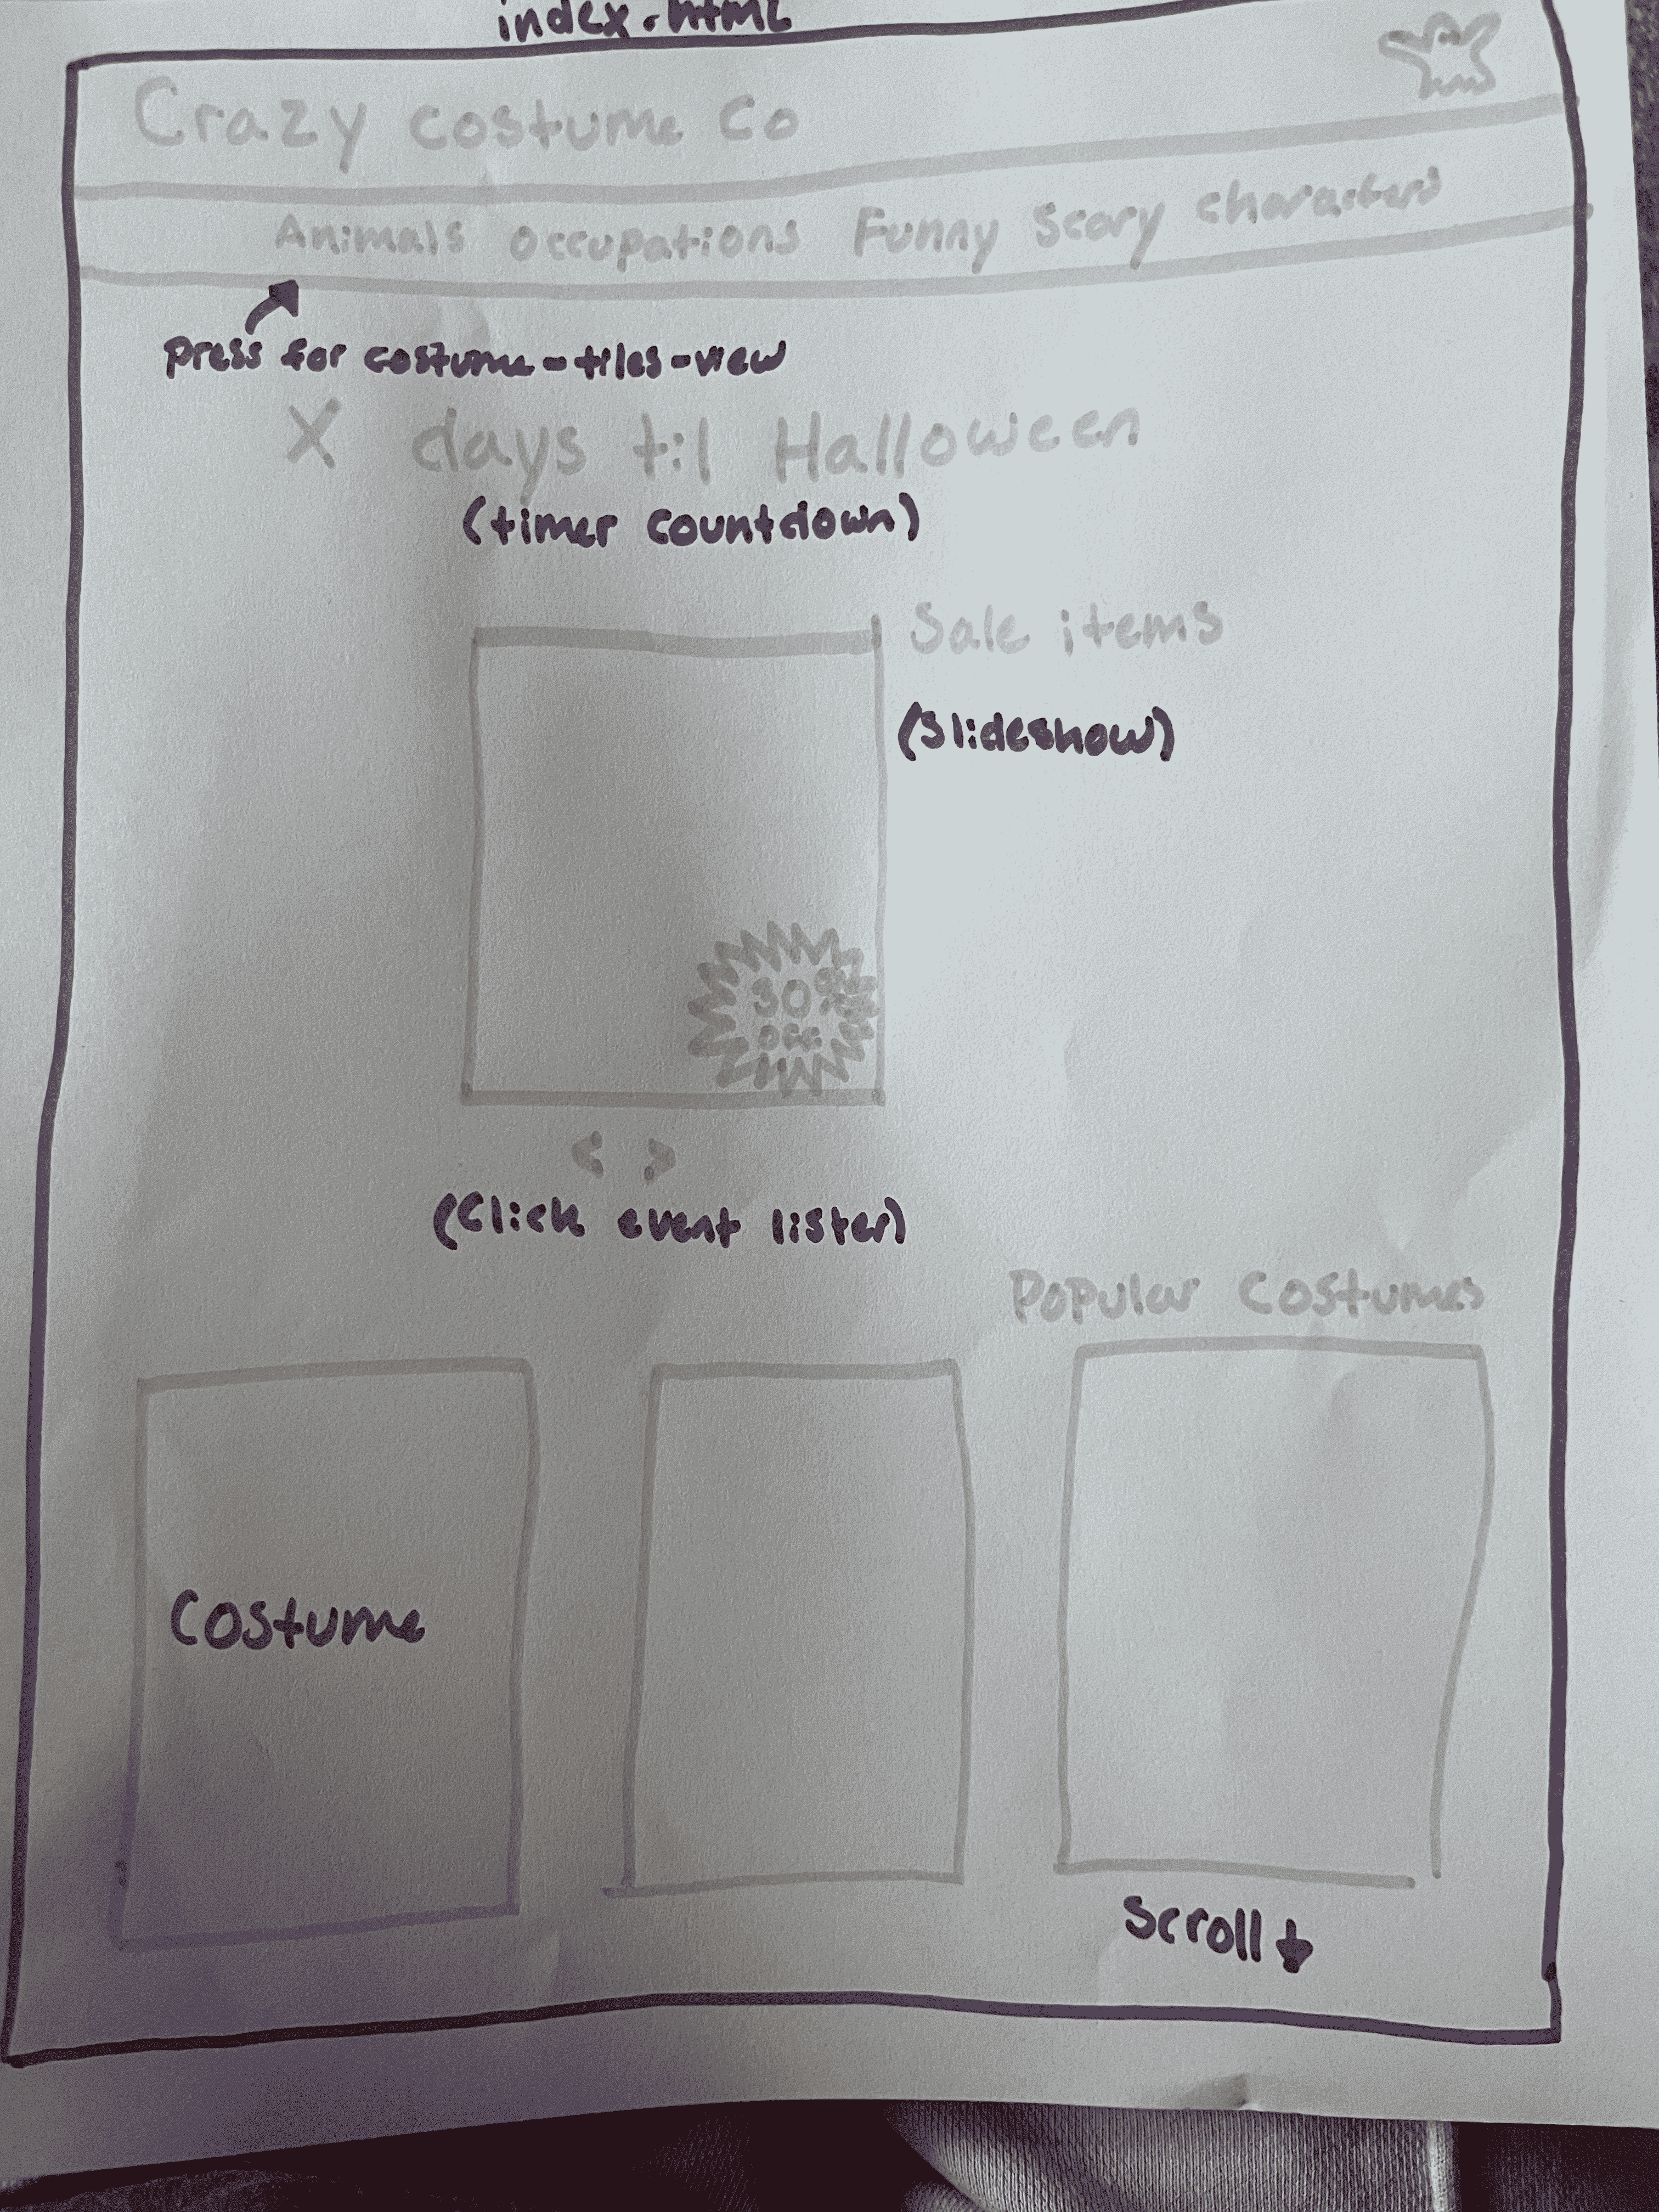 index.html
Crazy costume co
Animals occupations Funny Scary characters
press for costume-tiles-view
X days til Halloween
(timer countdown)
Sale items
(Slideshow)
30%
OFF
< >
(Click event lister)
Popular Costumes
Costume
Scroll ↓